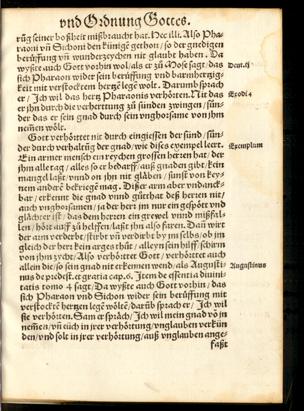 vnd Ordnung Gottes.
rũg seiner boßheit mißbraucht hat. Hec ille. Also Pha-
raoni vñ Sichoni den künigẽ gethon / so der gnedigen
berüffung vñ wunderzychen nit glaubt haben. Da
wyßte auch Gott vorhin wol / als er zů Mose sagt / das
Deut. ij
sich Pharaon wider sein berüffung vnd barmhertzig-
keit mit verstocktem hertzẽ legẽ wolt. Darumb sprach
er / Ich wil das hertz Pharaonis verhörten. Nit das
Exodi 4
er jhn durch die verherttung zů sünden zwingen / sun-
der das er sein gnad durch sein vnghorsame von jhm
nemẽn wölt.
Gott verhörttet nit durch eingiessen der sünd / sun-
der durch verhaltũg der gnad / wie dises exempel leert.
Exemplum
Ein armer mensch em reychen grossen herren hat / der
jhm alle tag / alles so er bedarff / auß gnaden gibt / kein
mangel laßt / vnnd on jhn nit gläben / sunst von key-
nem anderẽ bekriegẽ mag. Dißer arm aber vndanck-
bar / erkennt die gnad vnnd gůrthat deß herren nit /
auch vnghorsamen / ja der herr im nur ein gespött vnd
glächter ist / das dem herren ein grewel vnnd mißfal-
len / hört auff zů helffen / laßt jhn also faren. Dañ wirt
der arm verderbt / stirbt vñ verdirbt by jm selbs / ob jm
gleich der herr kein arges thůt / alleyn sein hilff / schirm
von jhm zycht. Also verhörttet Gott / verhörttet auch
allein die / so sein gnad nit erkennen wend / als Augusti-
Augustinus
nus de predest. et gratia cap. 6. Item de essentia diuini-
tatis tomo 4 sagt / Da wyßte auch Gott vorhin / das
sich Pharaon vnd Sichon wider sein berüffung mit
verstocktẽ hertzen legẽ wöltẽ / darũb sprach er / Ich wil
sie verhörten. Sam er spräch / Ich wil mein gnad võ in
nemẽn / vñ eüch in jrer verhörtung / vnglauben verkün
den / vnd solt in jrer verhörtung / auß vnglauben ange-
faßt